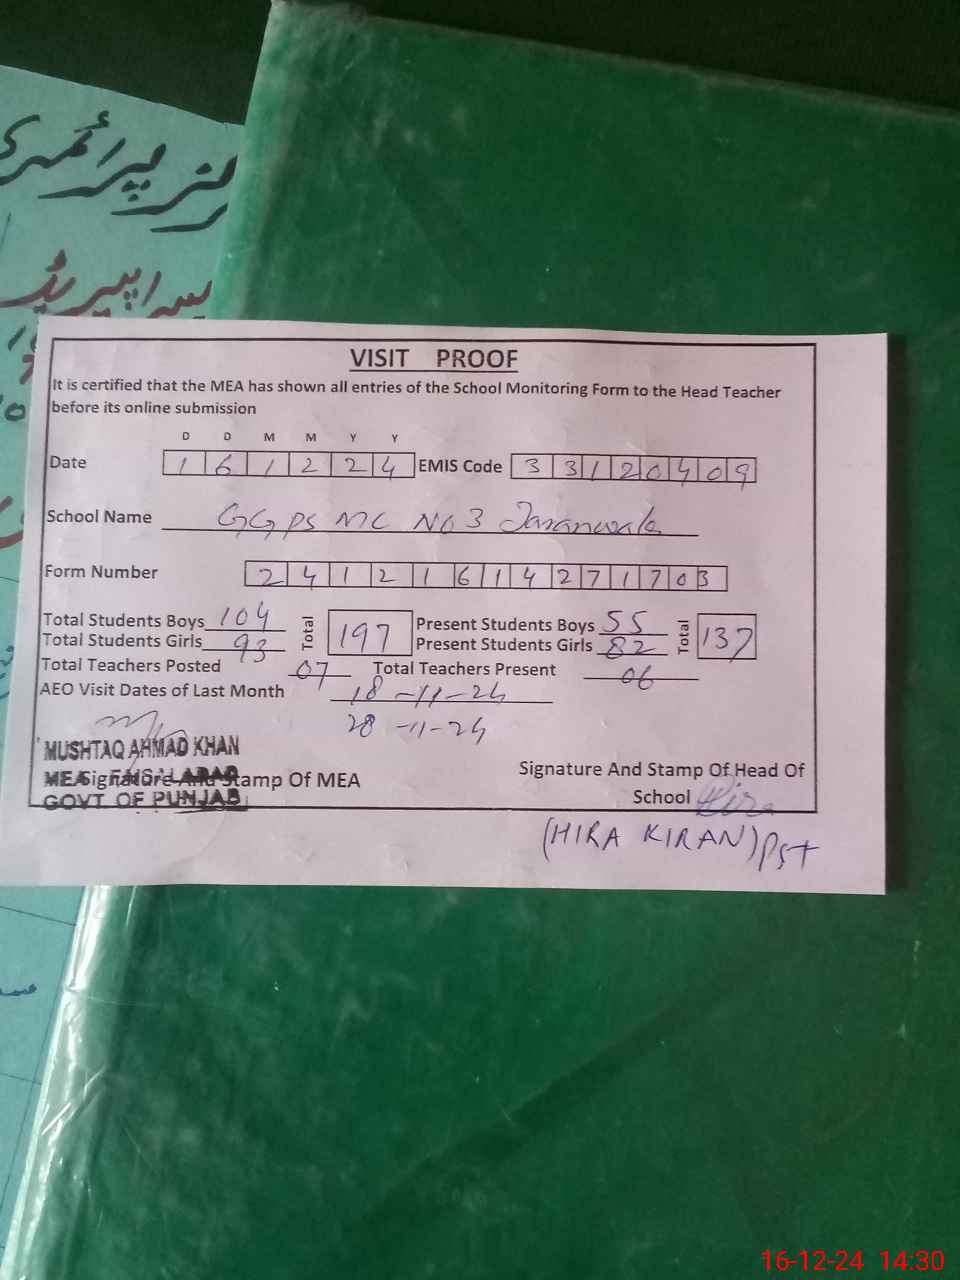 پرائمری
پیریڈ
VISIT PROOF
It is certified that the MEA has shown all entries of the School Monitoring Form to the Head Teacher
before its online submission
D D M M Y Y
Date 1 6 1 2 2 4 EMIS Code 3 3 1 2 0 4 0 9
School Name GGPS MC No 3 Jaranwala
Form Number 2 4 1 2 1 6 1 4 2 7 1 7 0 3
Total Students Boys 104 Total 197 Present Students Boys 55 Total 137
Total Students Girls 93 Present Students Girls 82
Total Teachers Posted 07 Total Teachers Present 06
AEO Visit Dates of Last Month 18-11-24
28-11-24
MUSHTAQ AHMAD KHAN
MEA FAISALABAD
GOVT OF PUNJAB
Signature And Stamp Of MEA
Signature And Stamp Of Head Of
School Hira
(HIRA KIRAN) PST
16-12-24 14:30